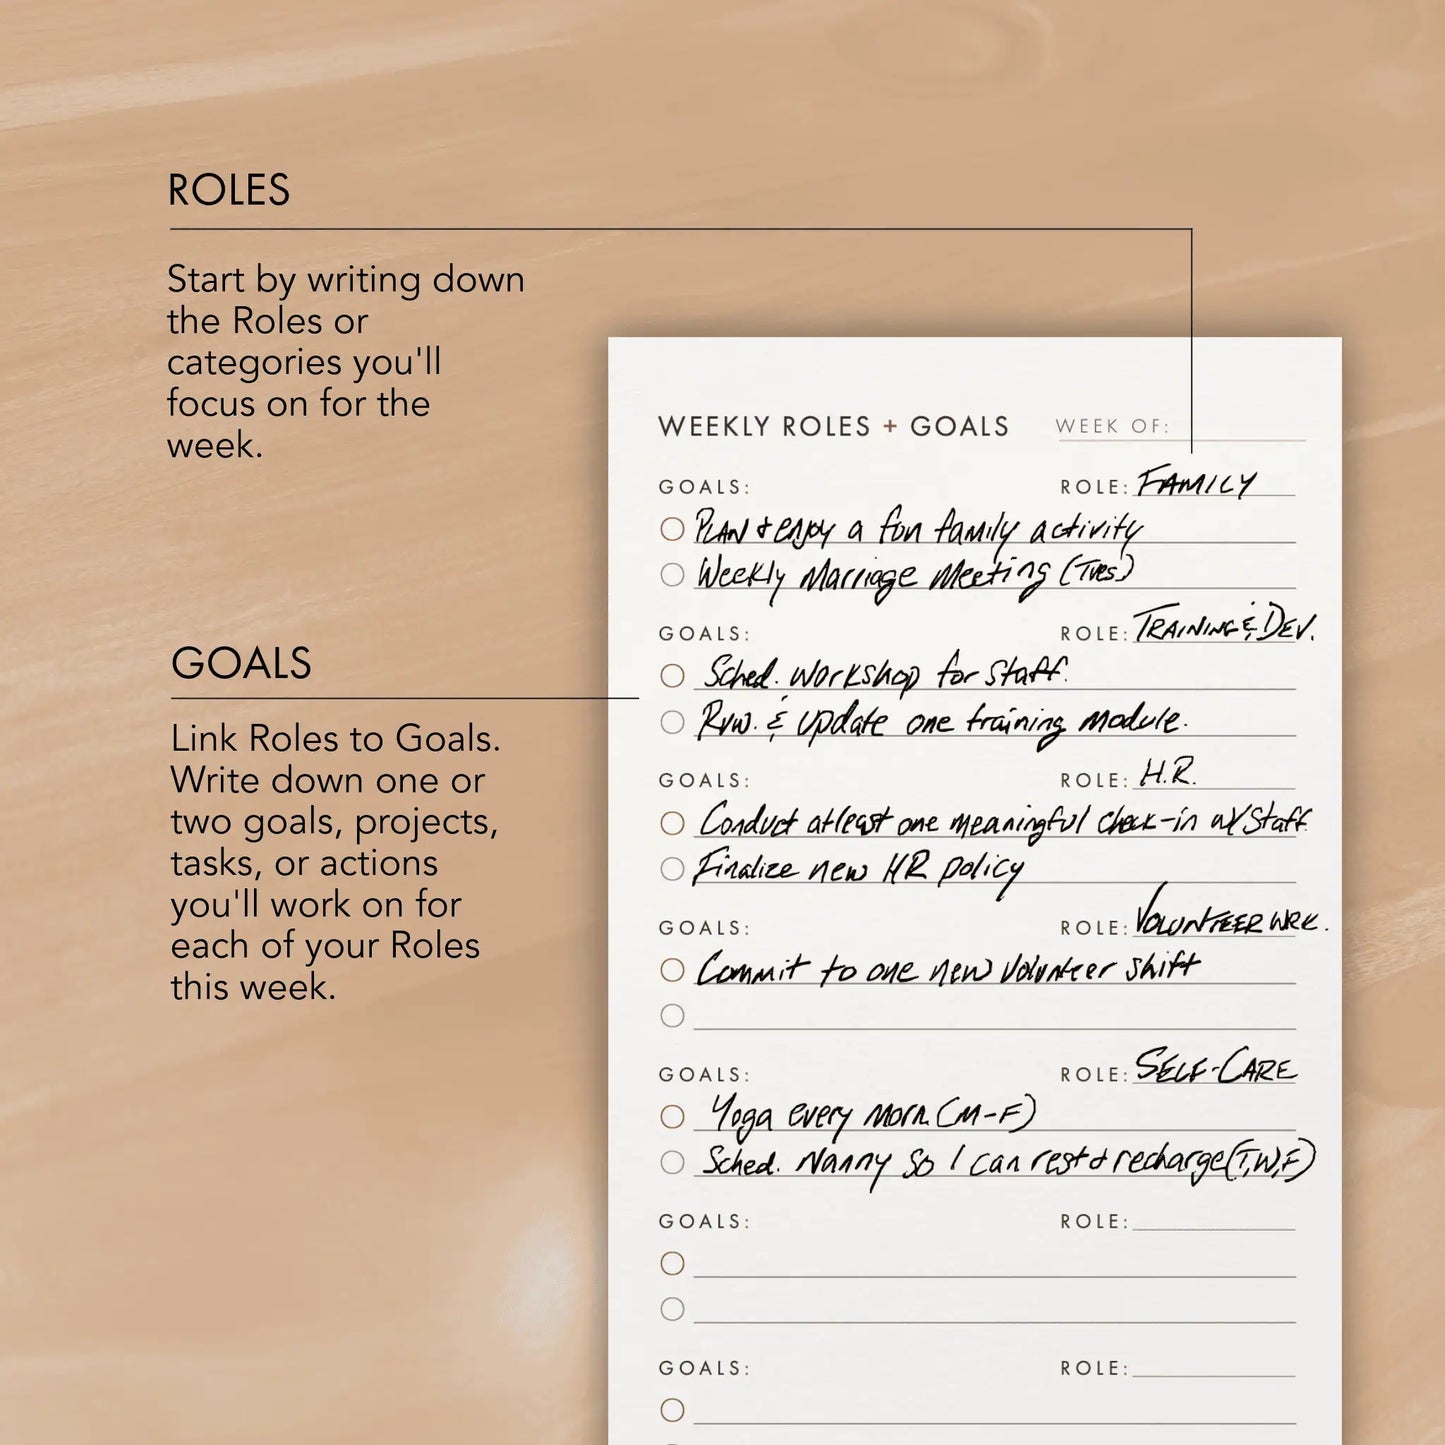 ROLES
Start by writing down
the Roles or
categories you'll
focus on for the
week.
GOALS
Link Roles to Goals.
Write down one or
two goals, projects,
tasks, or actions
you'll work on for
each of your Roles
this week.
WEEKLY ROLES + GOALS WEEK OF:
GOALS: ROLE: FAMILY
PLAN & enjoy a fun family activity
Weekly Marriage Meeting (Tues)
GOALS: ROLE: TRAINING & DEV.
Sched. workshop for staff.
Rvw. & update one training module.
GOALS: ROLE: H.R.
Conduct atleast one meaningful check-in w/ staff
Finalize new HR policy
GOALS: ROLE: VOLUNTEER WRK.
Commit to one new volunteer shift
GOALS: ROLE: SELF-CARE
Yoga every morn. (M-F)
Sched. Nanny so I can rest & recharge (T,W,F)
GOALS: ROLE:
GOALS: ROLE: